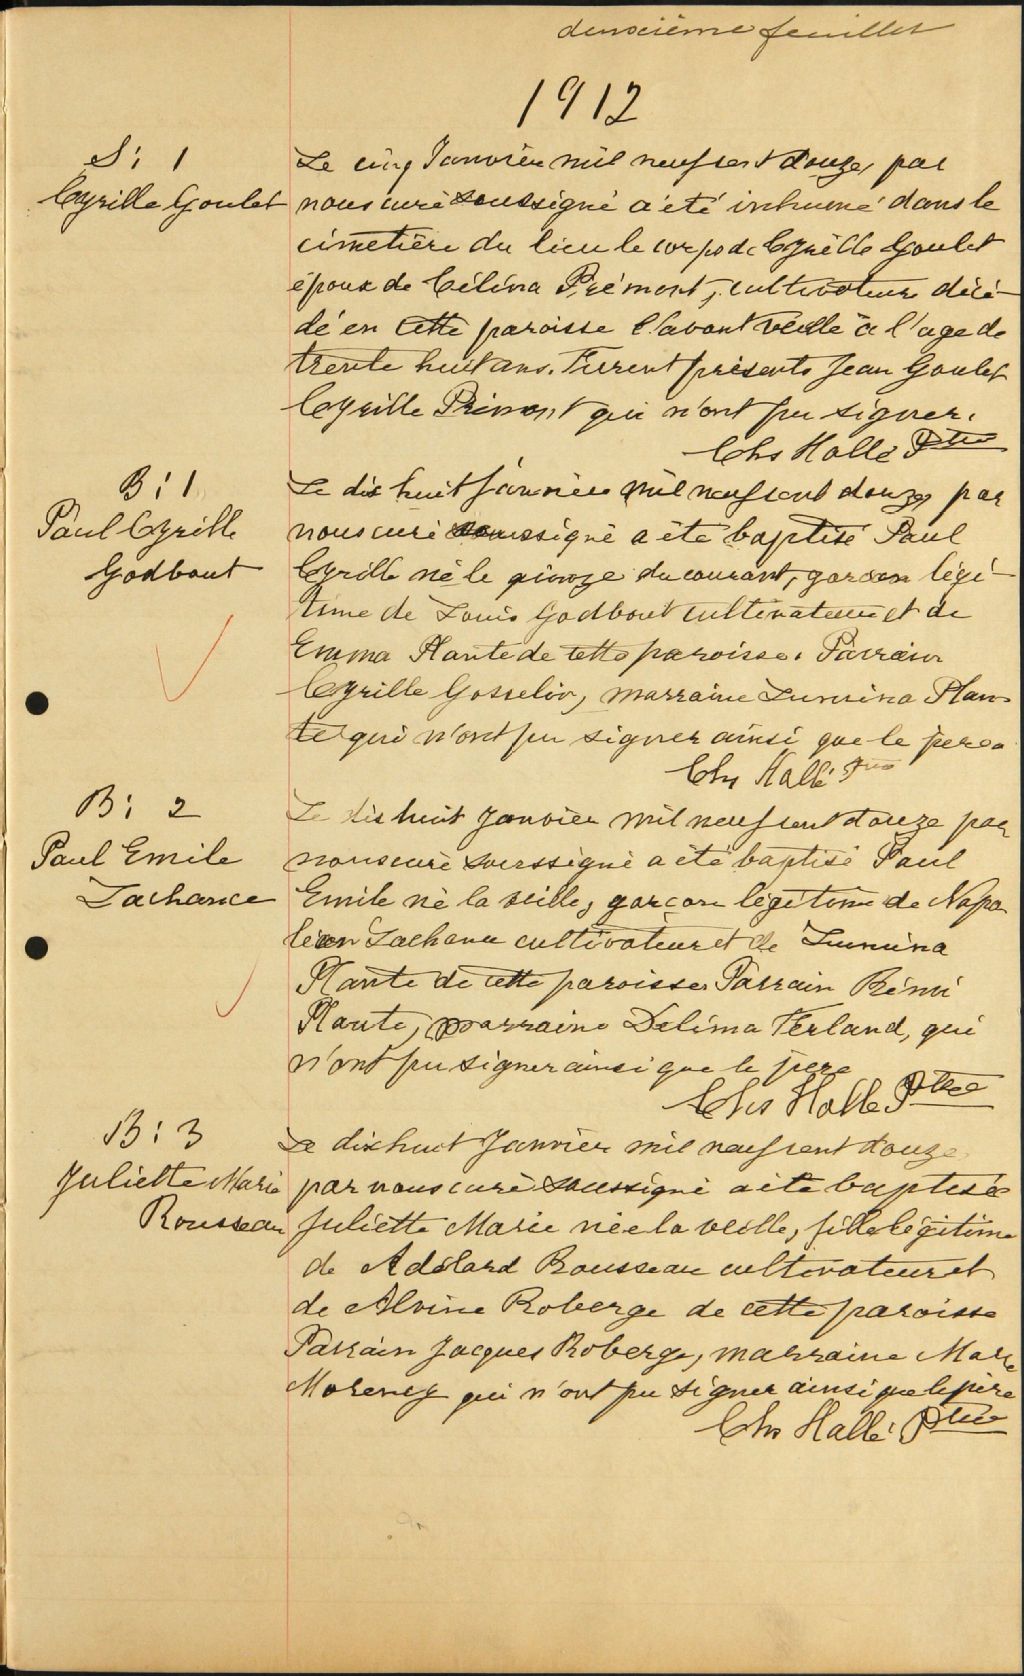 deuxième feuillet
1912
S: 1
Cyrille Goulet
Le cinq Janvier mil neuf cent douze, par
nous curé soussigné a été inhumé dans le
cimetière du lieu le corps de Cyrille Goulet
époux de Célina Prémont, cultivateur décé-
dé en cette paroisse l'avant veille à l'age de
trente huit ans. Furent présents Jean Goulet
Cyrille Primont qui n'ont pu signer.
Chs Hallé Ptre
B: 1
Paul Cyrille
Godbout
Le dix huit Janvier mil neuf cent douze, par
nous curé soussigné a été baptisé Paul
Cyrille né le quinze du courant, garcon légi-
time de Louis Godbout cultivateur et de
Emma Plante de cette paroisse. Parrain
Cyrille Gosselin, marraine Lumina Plan-
te qui n'ont pu signer ainsi que le pere
Chs Hallé Ptre
B: 2
Paul Emile
Lachance
Le dix huit Janvier mil neuf cent douze par
nous curé soussigné a été baptisé Paul
Emile né la veille, garçon légitime de Napo
léon Lachance cultivateur et de Lumina
Plante de cette paroisse. Parrain Rémi
Plante, marraine Delima Ferland, qui
n'ont pu signer ainsi que le pere
Chs Halle Ptre
B: 3
Juliette Marie
Rousseau
Le dix huit Janvier mil neuf cent douze
par nous curé soussigné a été baptisée
Juliette Marie née la veille, fille légitime
de Adélard Rousseau cultivateur et
de Alvine Roberge de cette paroisse
Parrain Jacques Roberge, marraine Marie
Morency qui n'ont pu signer ainsi que le père
Chs Hallé Ptre